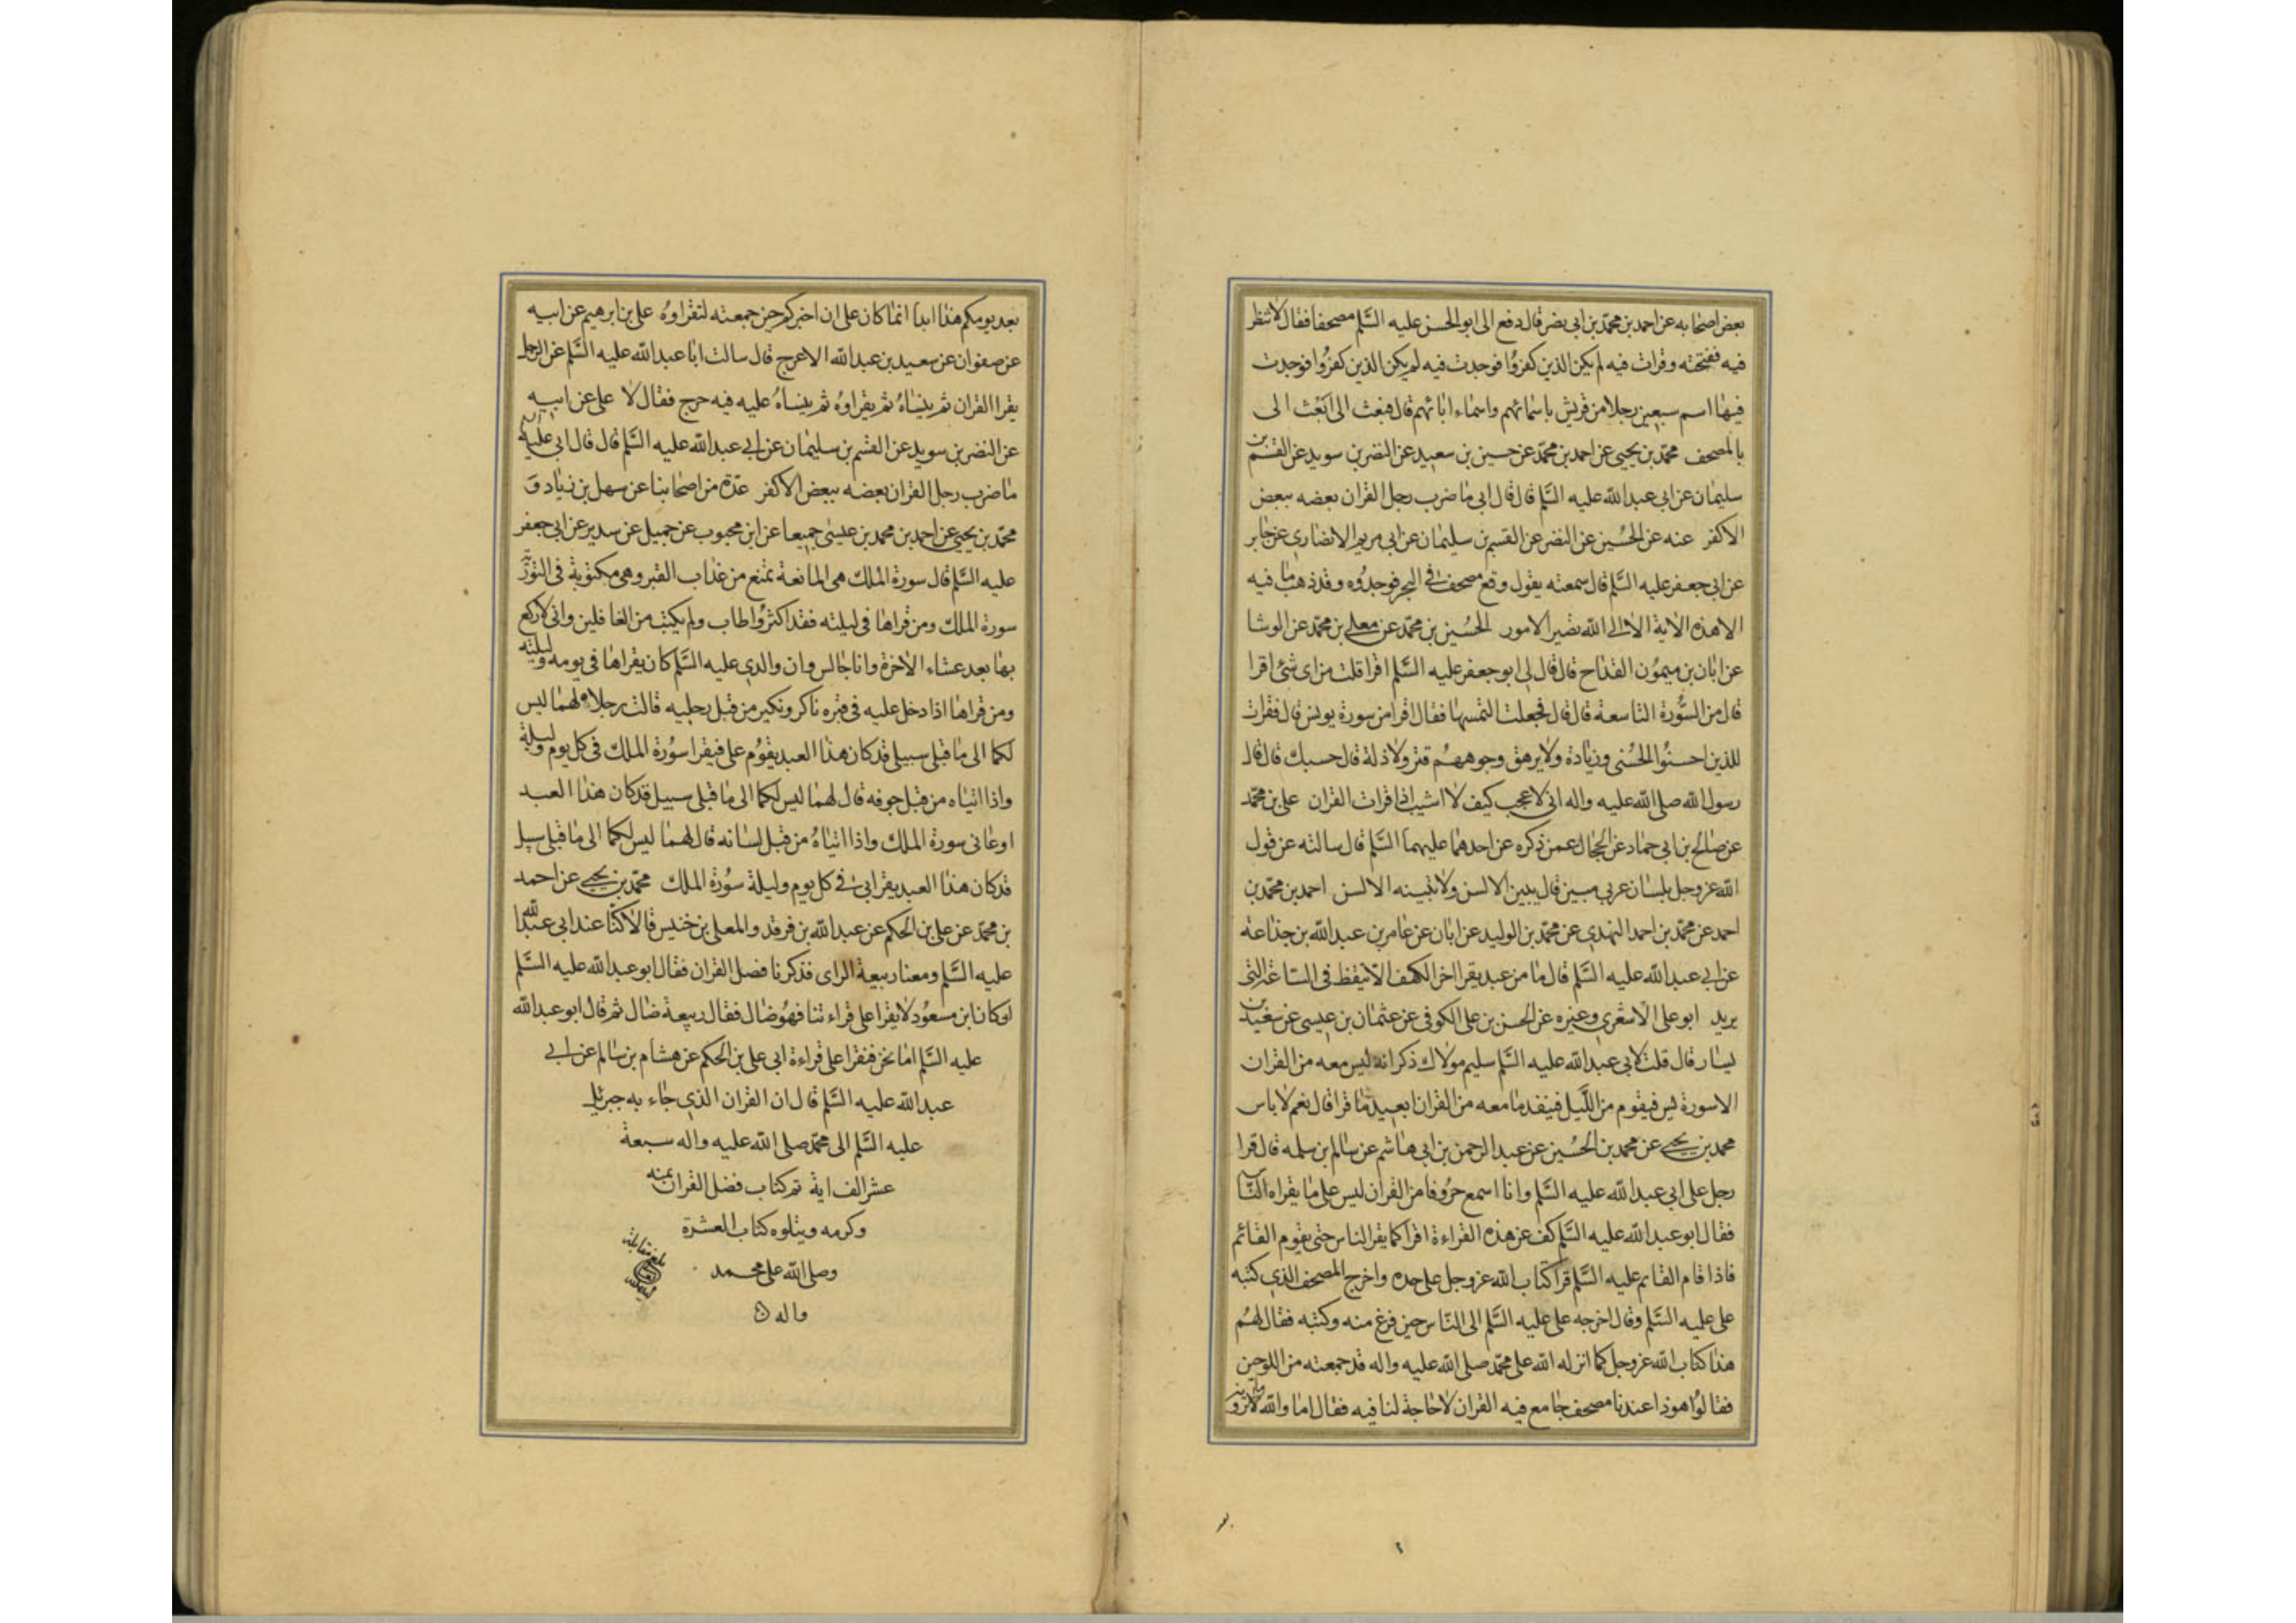 بعض اصحابه عن احمد بن محمد بن ابی نصر قال دفع الی ابو الحسن علیه السّلم مصحفا فقال لا تنظر
فیه ففتحته وقرات فیه لم یکن الذین کفروا فوجدت فیه لم یکن الذین کفروا فوجدت
فیها اسم سبعین رجلا من قریش باسمائهم واسماء ابائهم قال فبعث الی ابعث الی
بالمصحف محمّد بن یحیی عن احمد بن محمّد عن حسین بن سعید عن النضر بن سوید عن القسم بن
سلیمان عن ابی عبد الله علیه السّلم قال قال ابی ما ضرب رجل القران بعضه ببعض
الا کفر عنه عن الحسین عن النضر عن القسم بن سلیمان عن ابی مریم الانصاری عن جابر
عن ابی جعفر علیه السّلم قال سمعته یقول وقع مصحف فی البحر فوجدوه وقد ذهب ما فیه
الا هذه الایة الا الی الله تصیر الامور الحسین بن محمّد عن معلی بن محمّد عن الوشا
عن ابان بن میمون القداح قال قال لی ابو جعفر علیه السّلم اقرا قلت من ای شئ اقرا
قال من السّورة التاسعة قال قال فجعلت التمسها فقال اقرا من سورة یونس قال فقرات
للذین احسنوا الحسنی وزیادة ولا یرهق وجوههم قتر ولا ذلة قال حسبك قال قال
رسول الله صلی الله علیه واله انی لاعجب کیف لا اشیب اذا قرات القران علی بن محمّد
عن صالح بن ابی حماد عن الحجال عمن ذکره عن احدهما علیهما السّلم قال سالته عن قول
الله عز وجل بلسان عربی مبین قال یبین الالسن ولا تبینه الالسن احمد بن محمّد بن
احمد عن محمّد بن احمد النهدی عن محمّد بن الولید عن ابان عن عامر بن عبد الله بن جذاعة
عن ابی عبد الله علیه السّلم قال ما من عبد یقرا اخر الکهف الا تیقظ فی الساعة التی
یرید ابو علی الاشعری وغیره عن الحسن بن علی الکوفی عن عثمان بن عیسی عن سعید بن
یسار قال قلت لابی عبد الله علیه السّلم سلیم مولاك ذکر انه لیس معه من القران
الا سورة یس فیقوم من اللّیل فینفد ما معه من القران ایعید ما قرا قال نعم لا باس
محمد بن یحیی عن محمد بن الحسین عن عبد الرحمن بن ابی هاشم عن سالم بن سلمه قال قرا
رجل علی ابی عبد الله علیه السّلم وانا اسمع حروفا من القران لیس علی ما یقراه النّاس
فقال ابو عبد الله علیه السّلم کف عن هذه القراءة اقرا کما یقرا الناس حتی یقوم القائم
فاذا قام القائم علیه السّلم قرا کتاب الله عز وجل علی حده واخرج المصحف الذی کتبه
علی علیه السّلم وقال اخرجه علی علیه السّلم الی النّاس حین فرغ منه وکتبه فقال لهم
هذا کتاب الله عز وجل کما انزله الله علی محمّد صلی الله علیه واله قد جمعته من اللوحین
فقالوا هو ذا عندنا مصحف جامع فیه القران لا حاجة لنا فیه فقال اما والله ما ترونه
بعد یومکم هذا ابدا انما کان علی ان اخبرکم حین جمعته لتقراوه علی بن ابرهیم عن ابیه
عن صفوان عن سعید بن عبد الله الاعرج قال سالت ابا عبد الله علیه السّلم عن الرجل
یقرا القران ثم ینساه ثم یقراوه ثم ینساه علیه فیه حرج فقال لا علی عن ابیه
عن النضر بن سوید عن القسم بن سلیمان عن ابی عبد الله علیه السّلم قال قال ابی علیه السلم
ما ضرب رجل القران بعضه ببعض الا کفر عدّة من اصحابنا عن سهل بن زیاد و
محمّد بن یحیی عن احمد بن محمد بن عیسی جمیعا عن ابن محبوب عن جمیل عن سدیر عن ابی جعفر
علیه السّلم قال سورة الملك هی المانعة تمنع من عذاب القبر وهی مکتوبة فی التوریة
سورة الملك ومن قراها فی لیلته فقد اکثر واطاب ولم یکتب من الغافلین وانی لارکع
بها بعد عشاء الاخرة وانا جالس وان والدی علیه السّلم کان یقراها فی یومه ولیلته
ومن قراها اذا دخل علیه فی قبره ناکر ونکیر من قبل رجلیه قالت رجلاه لهما لیس
لکما الی ما قبلی سبیل قد کان هذا العبد یقوم علی فیقرا سورة الملك فی کل یوم ولیلة
واذا اتیاه من قبل جوفه قال لهما لیس لکما الی ما قبلی سبیل قد کان هذا العبد
اوعانی سورة الملك واذا اتیاه من قبل لسانه قال لهما لیس لکما الی ما قبلی سبیل
قد کان هذا العبد یقرا بی فی کل یوم ولیلة سورة الملك محمّد بن یحیی عن احمد
بن محمّد عن علی بن الحکم عن عبد الله بن فرقد والمعلی بن خنیس قالا کنّا عند ابی عبد الله
علیه السّلم ومعنا ربیعة الرای فذکرنا فضل القران فقال ابو عبد الله علیه السّلم
لو کان ابن مسعود لا یقرا علی قراءتنا فهو ضال فقال ربیعة ضال ثم قال ابو عبد الله
علیه السّلم اما نحن فنقرا علی قراءة ابی علی بن الحکم عن هشام بن سالم عن ابی
عبد الله علیه السّلم قال ان القران الذی جاء به جبرئیل
علیه السّلم الی محمّد صلی الله علیه واله سبعة
عشر الف ایة تم کتاب فضل القران بمنه
وکرمه ویتلوه کتاب العشرة
وصلی الله علی محمد
واله
بلغ مقابلة
بعد